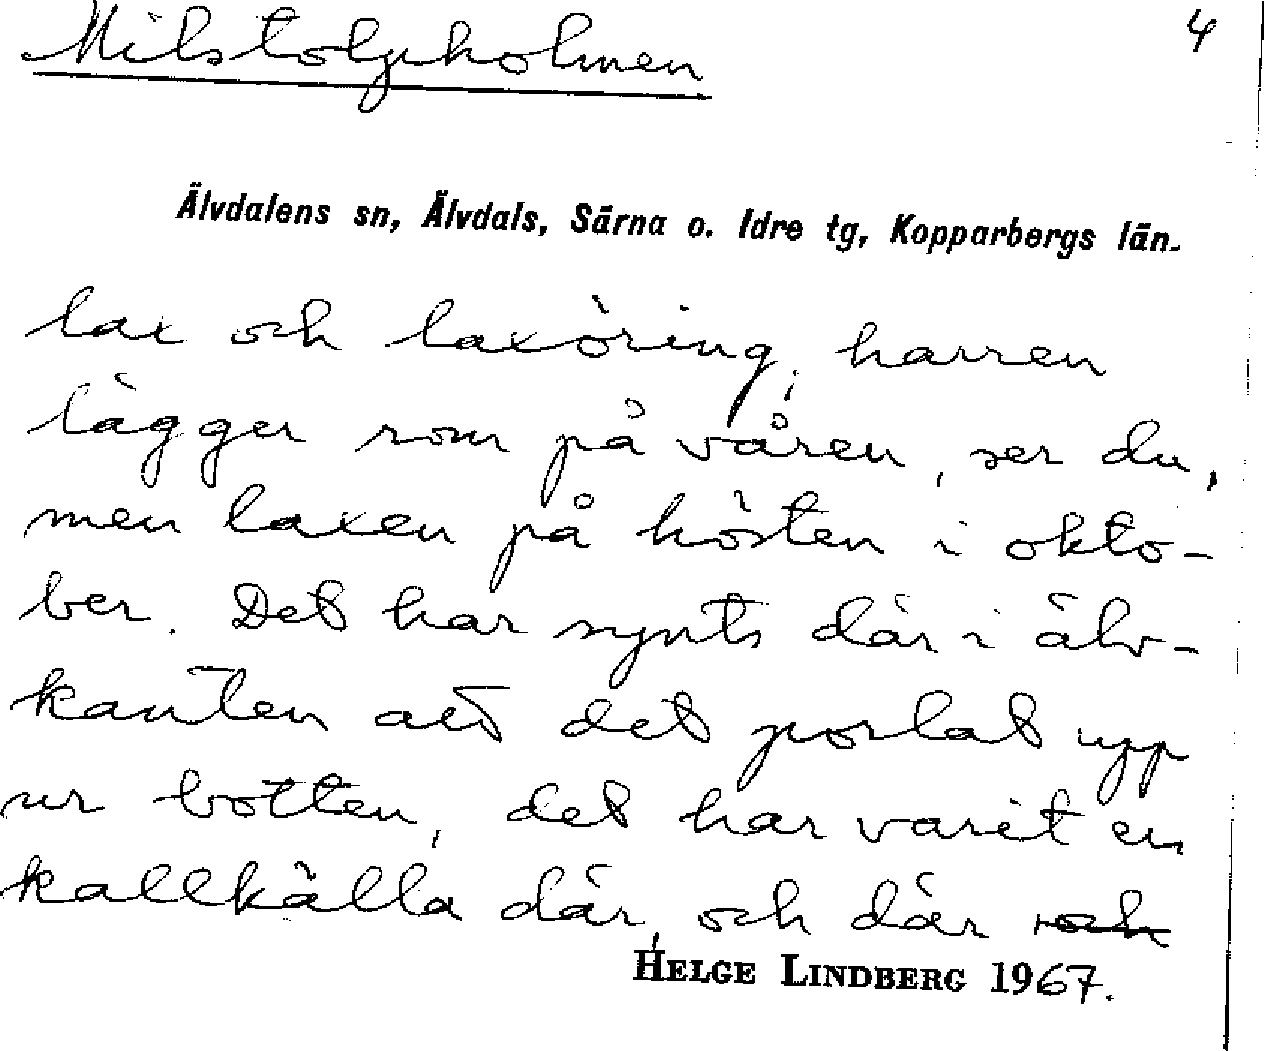 Milstolpholmen 4
Älvdalens sn, Älvdals, Särna o. Idre tg, Kopparbergs län.
lax och laxöring; harren
lägger rom på våren, ser du,
men laxen på hösten i okto-
ber. Det har synts där i älv-
kanten att det porlat upp
ur botten, det har varit en
kallkälla där, och där och
HELGE LINDBERG 1967.